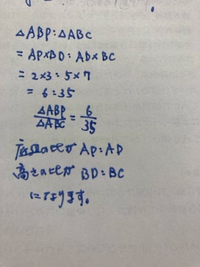 △ABP:△ABC
= AP×BD:AD×BC
= 2×3:5×7
= 6:35
△ABP/△ABC = 6/35
底辺の比が AP:AD
高さの比が BD:BC
になります。